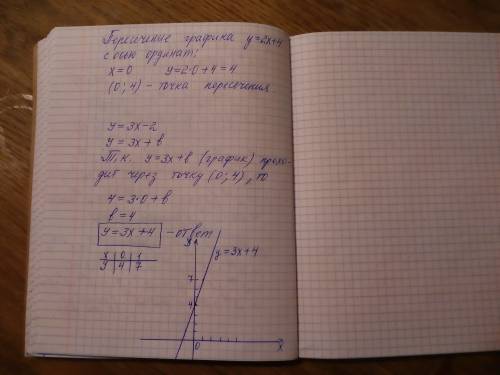 Пересечение графика y=2x+4
с осью ординат:
x=0 y=2·0+4=4
(0; 4) - точка пересечения
y=3x-2
y=3x+b
Т.к. y=3x+b (график) прохо-
дит через точку (0; 4), то
4=3·0+b
b=4
y=3x+4 - ответ
x 0 1
y 4 7
y
y=3x+4
7
4
0 x